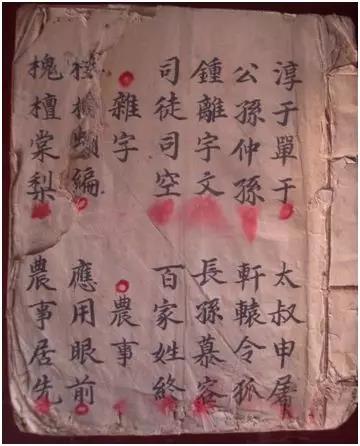 淳于單于 太叔申屠
公孫仲孫 軒轅令狐
鍾離宇文 長孫慕容
司徒司空 百家姓終
雜字 農事
編 應用眼前
槐檀棠梨 農事居先